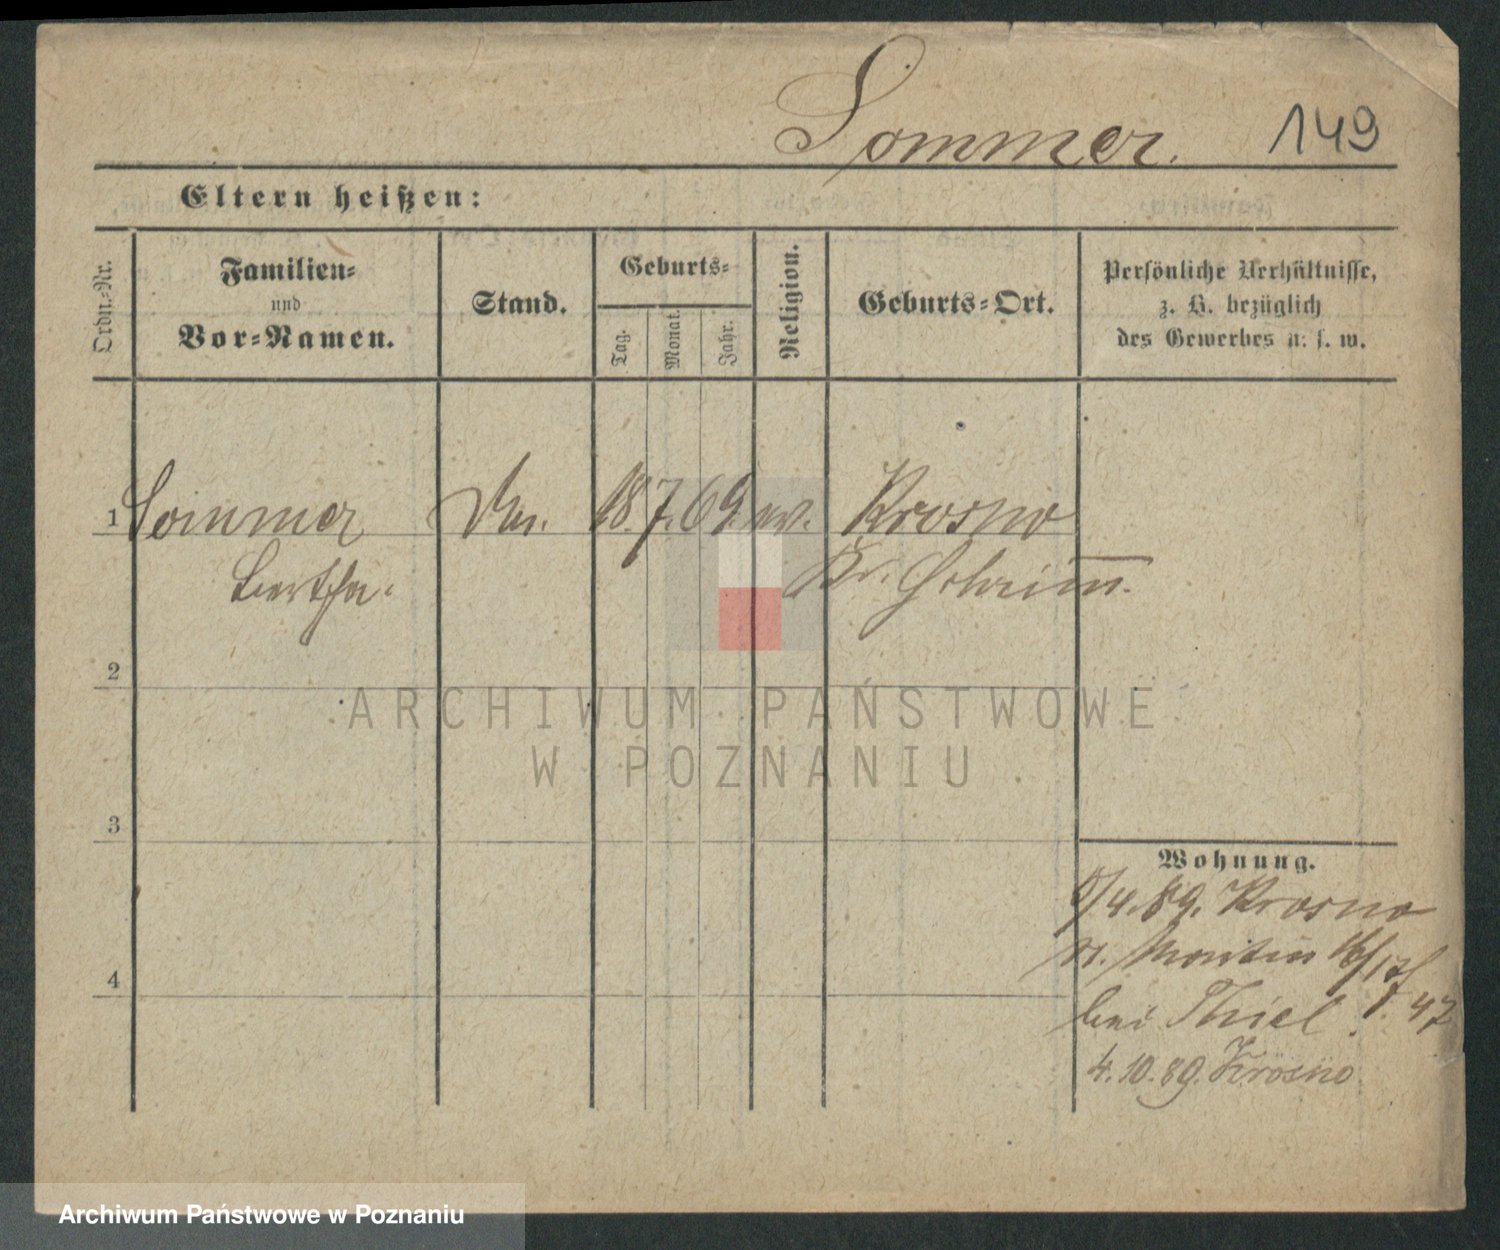 Sommer.
149
Eltern heißen:
Ordn.-Nr.
Familien-
und
Vor-Namen.
Stand.
Geburts-
Tag.
Monat.
Jahr.
Religion.
Geburts-Ort.
Persönliche Verhältnisse,
z. B. bezüglich
des Gewerbes u. s. w.
1 Sommer 18. 7. 69. ev. Krosno
Bertha. Kr. Schrimm.
2
3
4
Wohnung.
/4. 89. Krosno
St. Martin
bei Thiel. 47
4. 10. 89. Krosno
ARCHIWUM PAŃSTWOWE
W POZNANIU
Archiwum Państwowe w Poznaniu